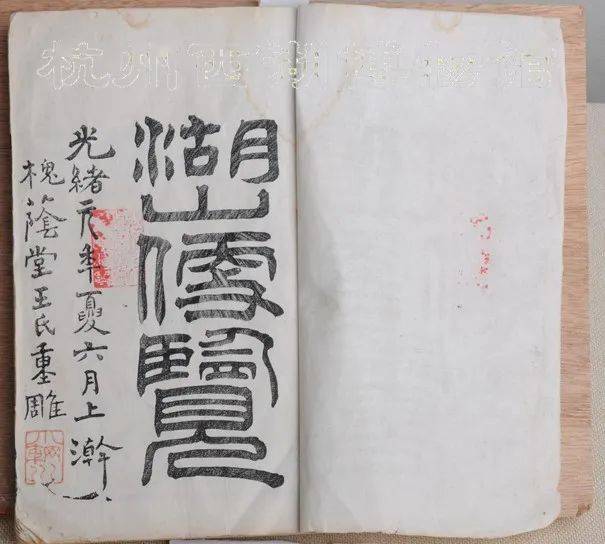 杭州西湖博物馆
湖山便覽
光緒元年夏六月上澣
槐蔭堂王氏重雕